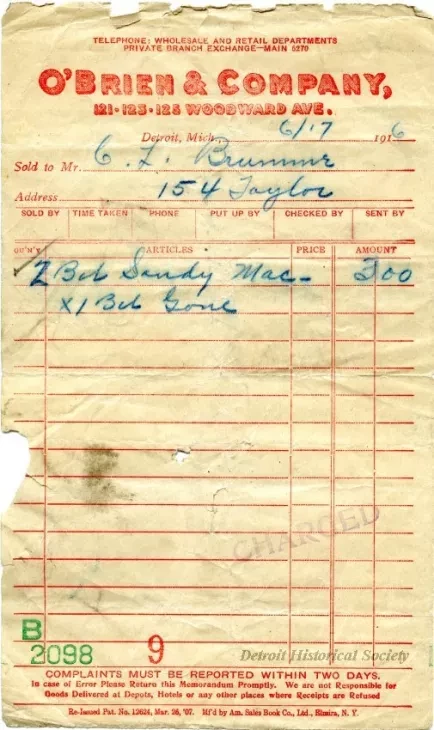 TELEPHONE: WHOLESALE AND RETAIL DEPARTMENTS
PRIVATE BRANCH EXCHANGE—MAIN 6270
O'BRIEN & COMPANY,
121-123-125 WOODWARD AVE.
Detroit, Mich., 6/17 1916
Sold to Mr. C. L. Brummr
Address 154 Taylor
SOLD BY TIME TAKEN PHONE PUT UP BY CHECKED BY SENT BY
QU'N'Y ARTICLES PRICE AMOUNT
2 Bot Sandy Mac- 300
x1 Bot Gone
CHARGED
B
2098 9
Detroit Historical Society
COMPLAINTS MUST BE REPORTED WITHIN TWO DAYS.
In case of Error Please Return this Memorandum Promptly. We are not Responsible for
Goods Delivered at Depots, Hotels or any other places where Receipts are Refused
Re-Issued Pat. No. 12624, Mar. 26, '07. M'f'd by Am. Sales Book Co., Ltd., Elmira, N. Y.